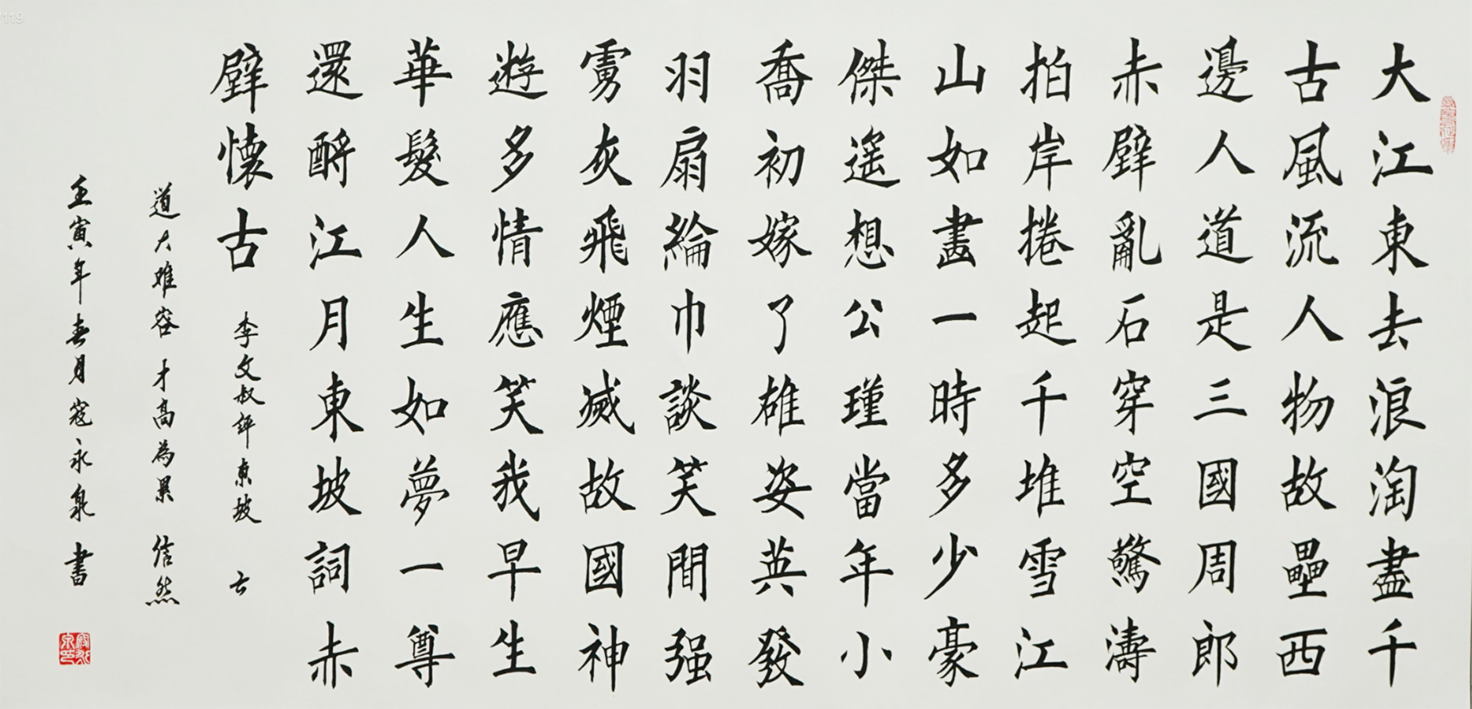 大江東去浪淘盡千
古風流人物故壘西
邊人道是三國周郎
赤壁亂石穿空驚濤
拍岸捲起千堆雪江
山如畫一時多少豪
傑遙想公瑾當年小
喬初嫁了雄姿英發
羽扇綸巾談笑間强
虜灰飛煙滅故國神
遊多情應笑我早生
華髮人生如夢一尊
還酹江月東坡詞赤
壁懷古 李文叔評東坡 云
道大难容 才高為累 信然
壬寅年春月寇永泉 書
119